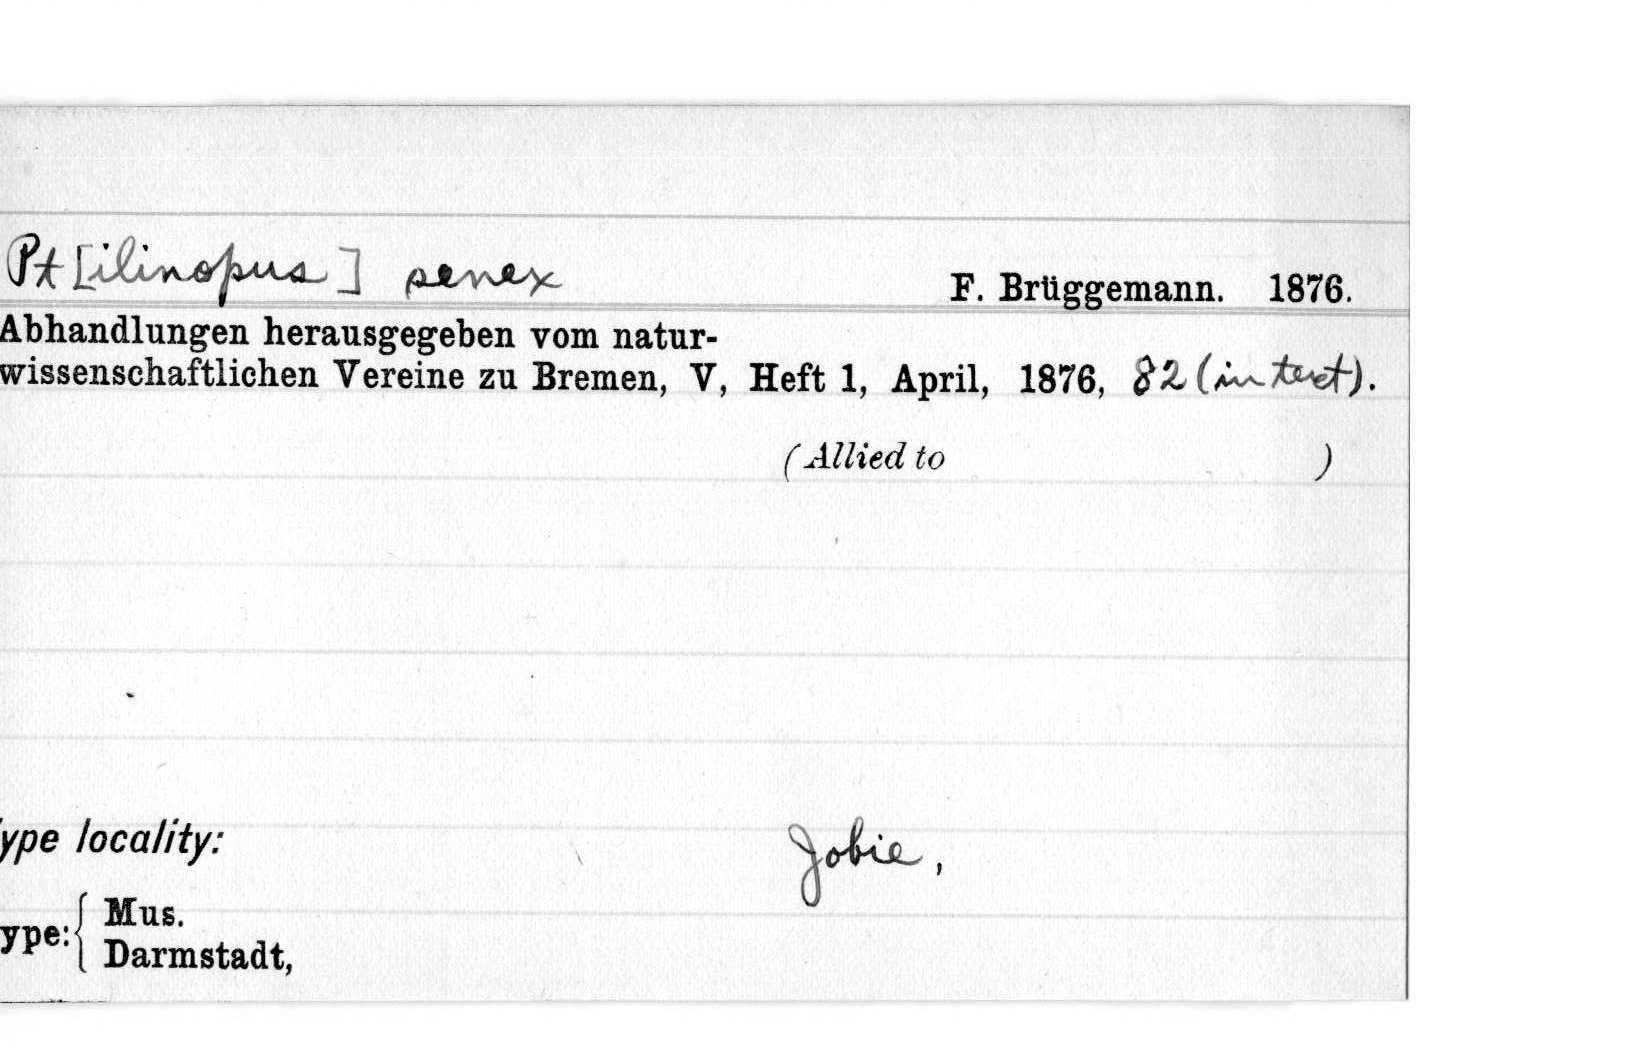 Pt[ilinopus] senex F. Brüggemann. 1876.
Abhandlungen herausgegeben vom natur-
wissenschaftlichen Vereine zu Bremen, V, Heft 1, April, 1876, 82 (in text).
(Allied to )
ype locality: Jobie,
ype: { Mus.
Darmstadt,